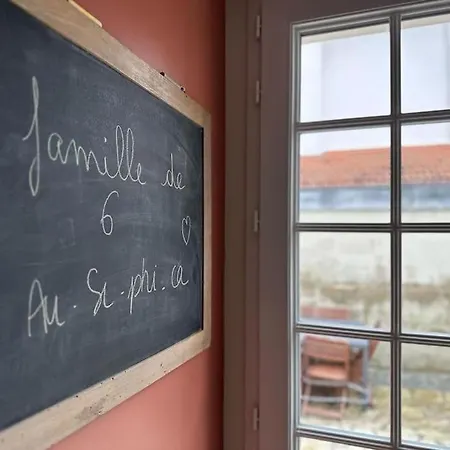 famille de
6 ♡
Au . Se . phi . ca